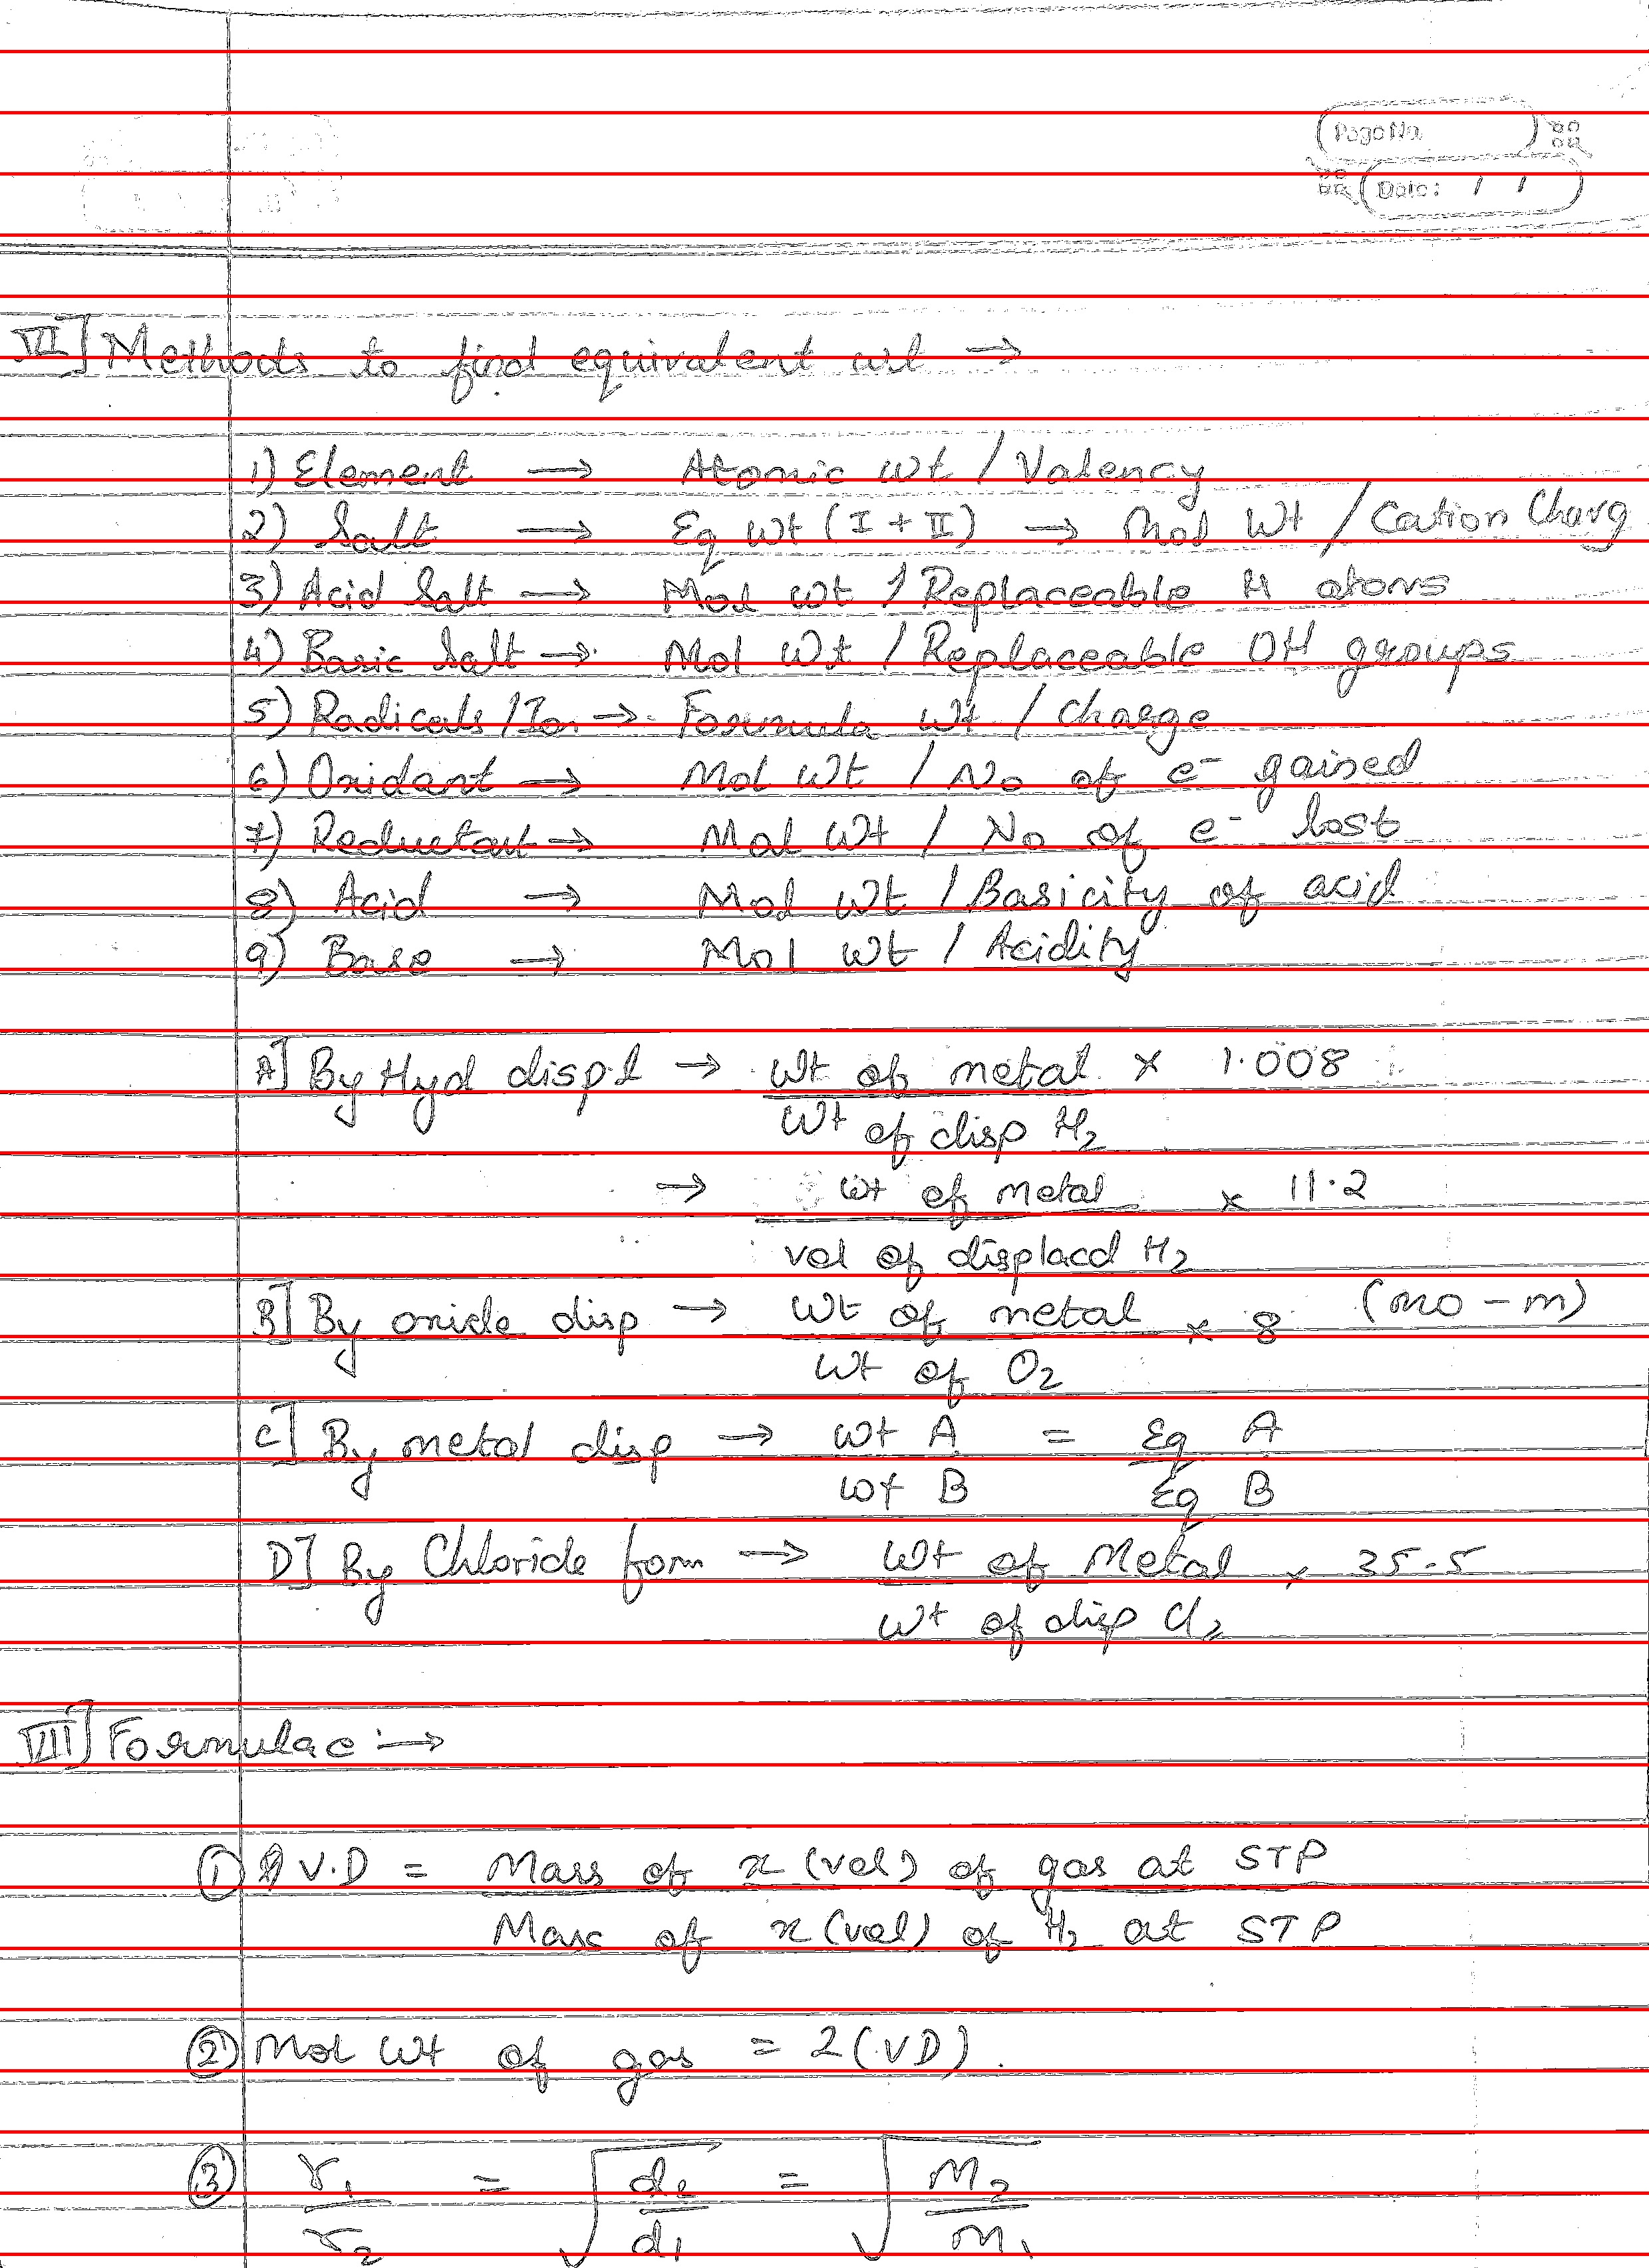 Page No.
Date: / /
VI] Methods to find equivalent wt →
1) Element → Atomic wt / Valency
2) Salt → Eq wt (I + II) → Mol wt / Cation Charg
3) Acid Salt → Mol wt / Replaceable H atoms
4) Basic Salt → Mol wt / Replaceable OH groups
5) Radicals / Ion → Formula wt / charge
6) Oxidant → Mol wt / No of e⁻ gained
7) Reductant → Mol wt / No of e⁻ lost
8) Acid → Mol wt / Basicity of acid
9) Base → Mol wt / Acidity
A] By Hyd displ → wt of metal × 1.008
wt of disp H₂
→ wt of metal × 11.2
vol of displacd H₂
B] By oxide disp → wt of metal × 8 (mo - m)
wt of O₂
C] By metal disp → wt A = Eq A
wt B Eq B
D] By Chloride form → wt of Metal × 35.5
wt of disp Cl₂
VII] Formulae :→
① V.D = Mass of x (vol) of gas at STP
Mass of x (vol) of H₂ at STP
② Mol wt of gas = 2(VD).
③ r₁ = √ d₂ = √ M₂
r₂ d₁ M₁